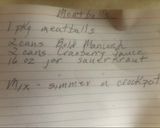 Meatballs
1 pkg meatballs
2 cans Bold Manwich
2 cans Cranberry Sauce
16 oz jar sauerkraut
Mix - simmer in crockpot